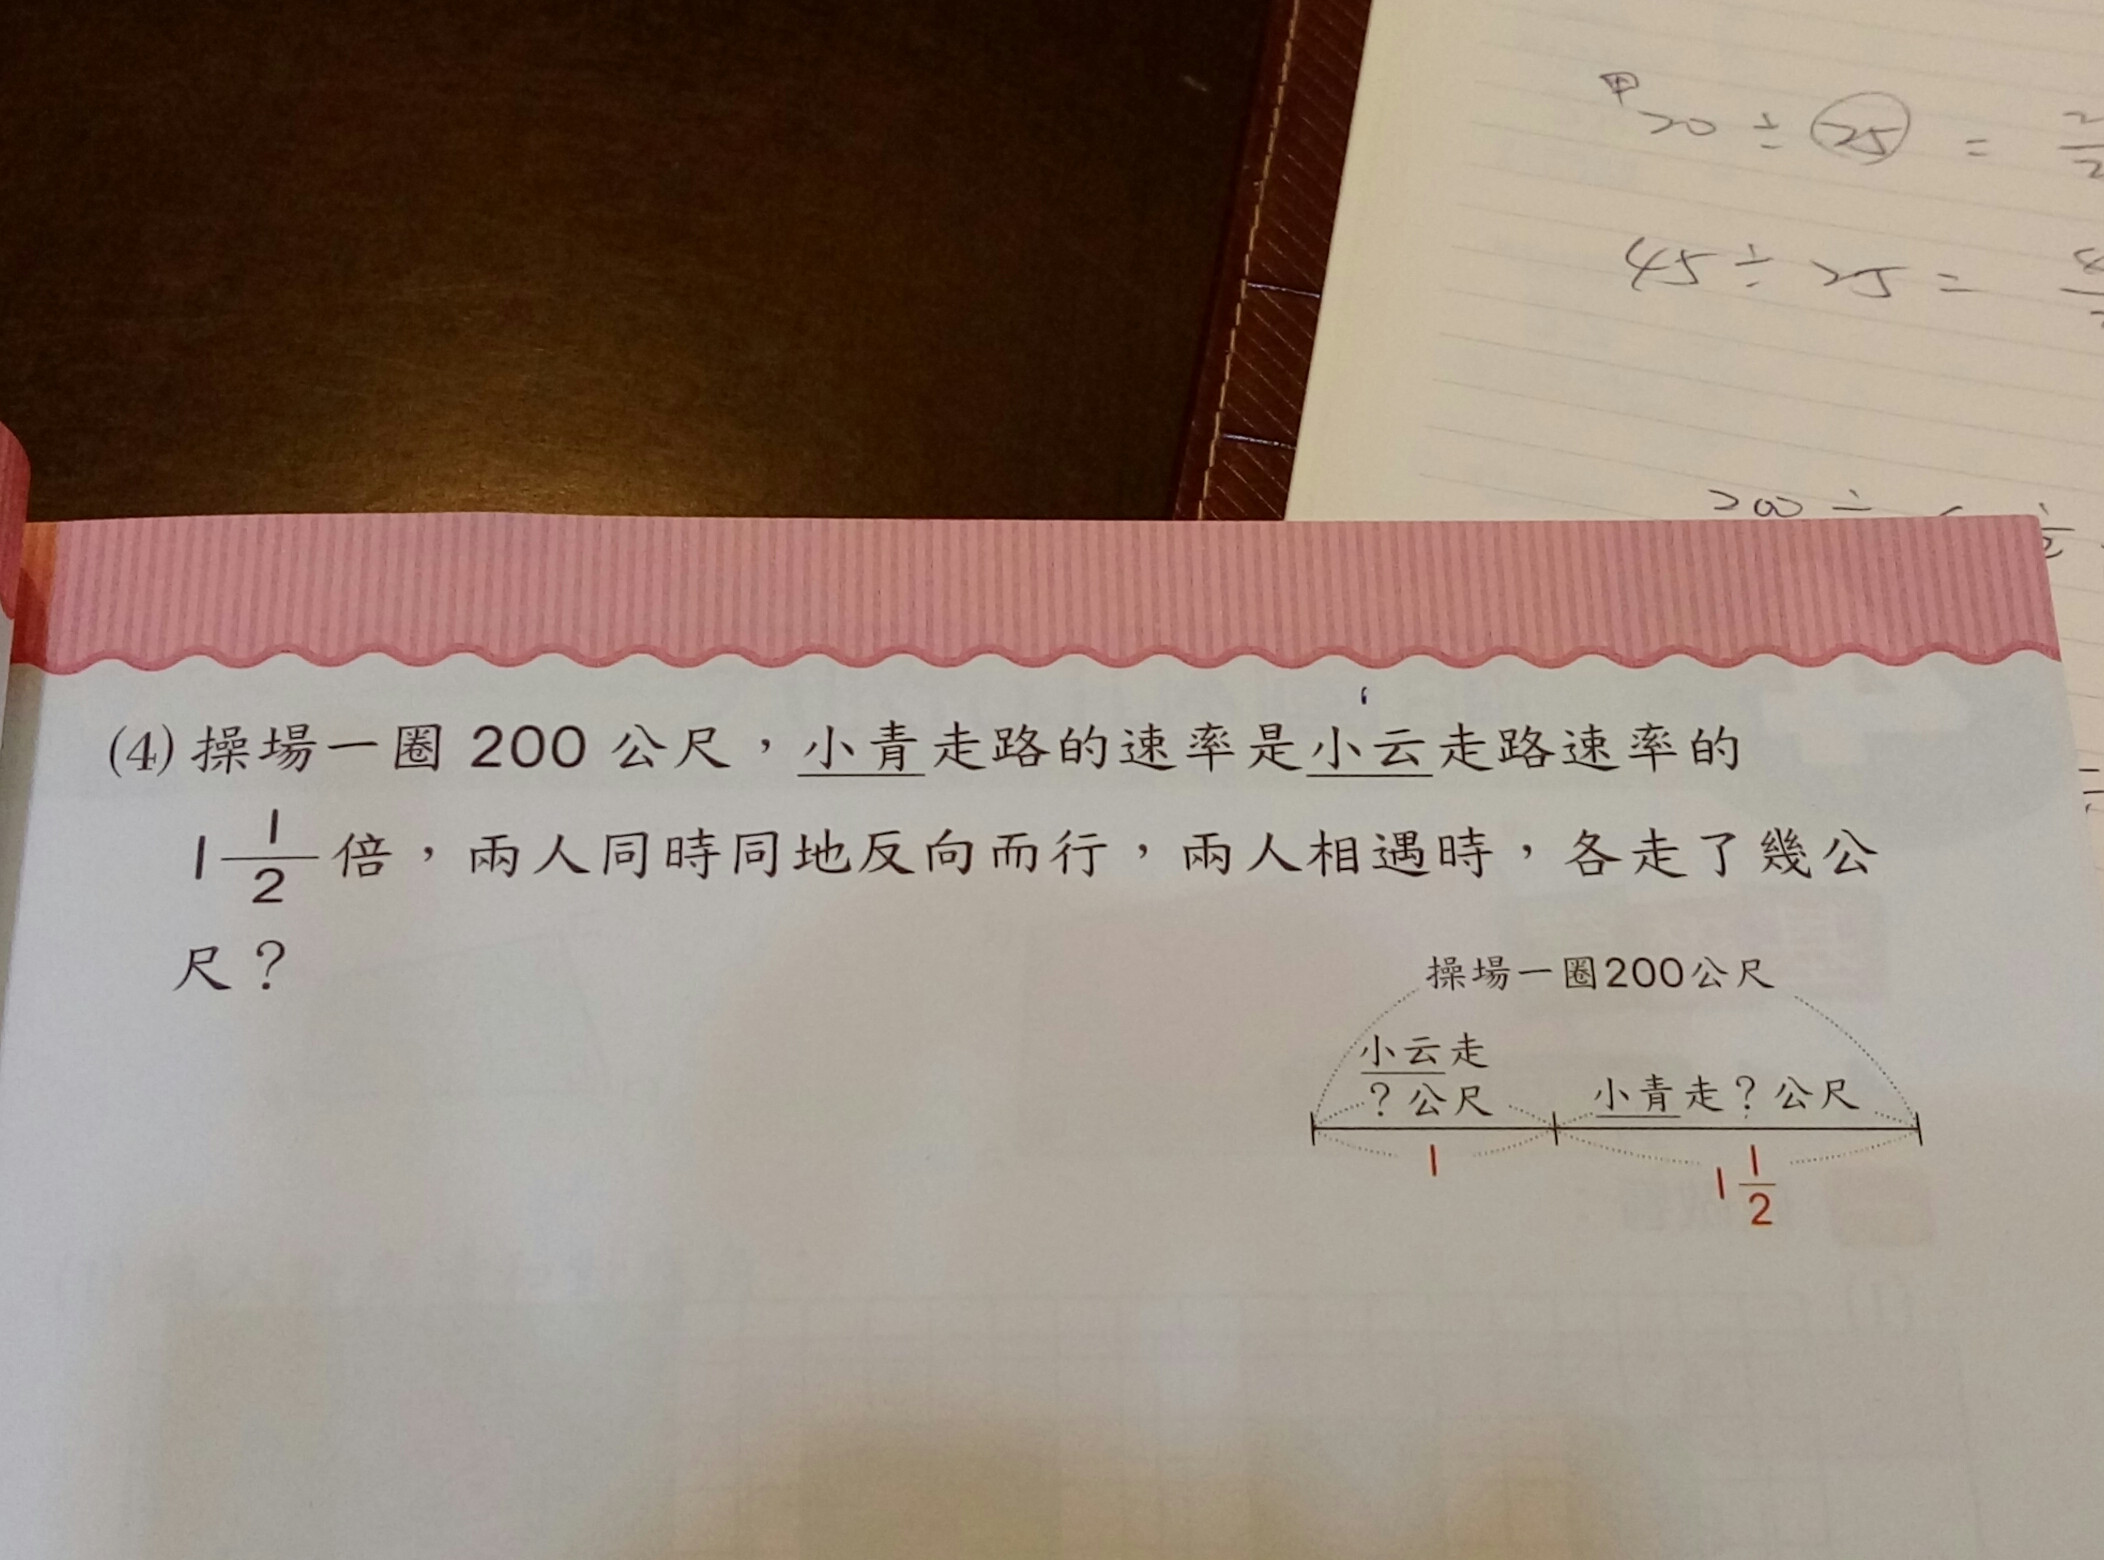 甲
20 ÷ 25 =
45 ÷ 25 =
200 ÷
(4) 操場一圈 200 公尺，小青走路的速率是小云走路速率的
1 1/2 倍，兩人同時同地反向而行，兩人相遇時，各走了幾公
尺？
操場一圈200公尺
小云走
？公尺
小青走？公尺
1
1 1/2